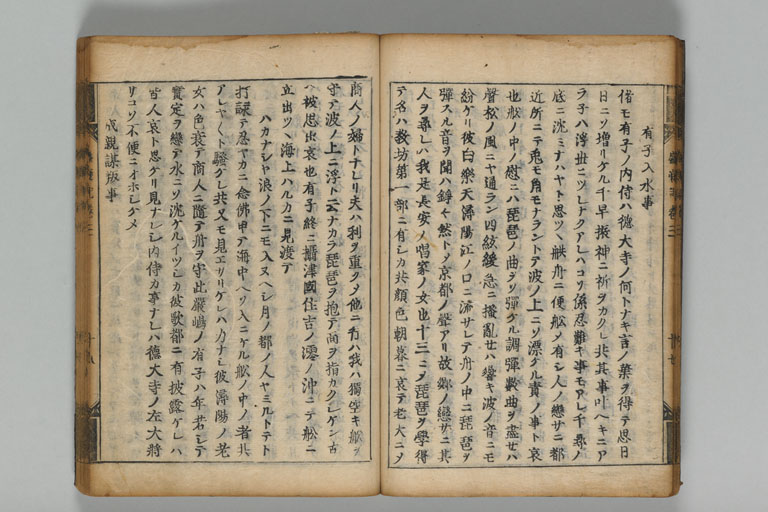 有子入水事
偖モ有子ノ内侍ハ徳大寺ノ何トナキ言ノ葉ヲ得テ思日
日ニソ増リケル千早振神ニ祈ヲカクレ共其事叶ヘキニア
ラ子ハ浮世ニツレナクアレハコソ係忍難キ事モアレ千尋ノ
底ニ沈ミナハヤト思ツヽ舩舟ニ便舩メ有シ人ノ戀サニ都
近所ニテ兎モ角モナラントテ波ノ上ニソ漂ケル責ノ事ト哀
也舩ノ中ノ慰ニハ琵琶ノ曲ヲソ彈ケル調彈數曲ヲ盡セハ
聲松ノ風ニヤ通ラン四絃緩急ニ撥亂セハ響キ波ノ音ニモ
紛ケリ彼白樂天潯陽江ノ口ニ流サレテ舟ノ中ニ琵琶ヲ
彈スル音ヲ聞ハ錚々然トメ京都ノ聲アリ故郷ノ戀サニ其
人ヲ尋レハ我是長安ノ唱家ノ女也十三ニメ琵琶ヲ學得
テ名ハ教坊第一部ニ有シカ共顔色朝暮ニ衰テ老大ニメ
商人ノ婦トナレリ夫ハ利ヲ重クメ他ニ行ハ我ハ獨空キ舩ヲ
守テ波ノ上ニ浮トナカラ琵琶ヲ抱テ面ヲ指カクシケン古
ヘ被思出哀也有子終ニ攝津國住吉ノ澪ノ沖ニテ舩ニ
立出ツヽ海上ハルカニ見渡テ
ハカナシヤ浪ノ下ニモ入ヌヘシ月ノ都ノ人ヤミルトテト
打詠テ忍ヤカニ念佛申テ海中ヘソ入ニケル舩ノ中ノ者共
アレヤ〱ト騒グレ共又モ見エサリケレハ力ナシ彼潯陽ノ老
女ハ色衰テ商人ニ隨テ舟ヲ守此嚴嶋ノ有子ハ年若シテ
實定ヲ戀テ水ニソ沈ケルイツシカ彼歌都ニ有披露ケレハ
皆人哀ト思ケリ見ナレシ内侍カ事ナレハ徳大寺ノ左大將
サコソ不便ニオホシケメ
成親謀叛事